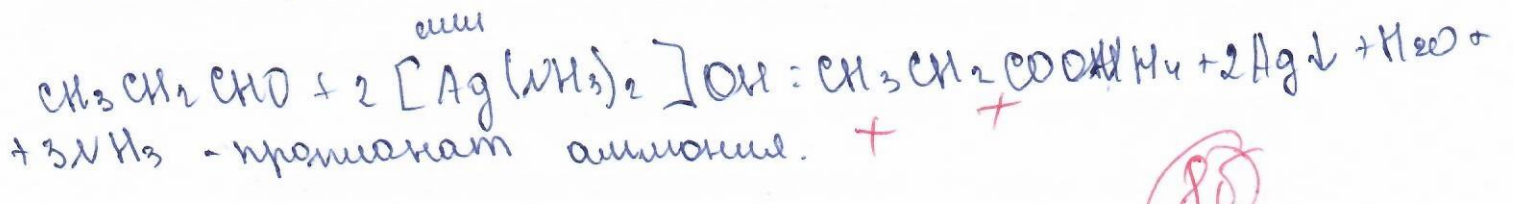 или
CH₃CH₂CHO + 2 [Ag(NH₃)₂]OH = CH₃CH₂COONH₄ + 2Ag↓ + H₂O +
+ 3NH₃ - пропионат аммония. + +
8б